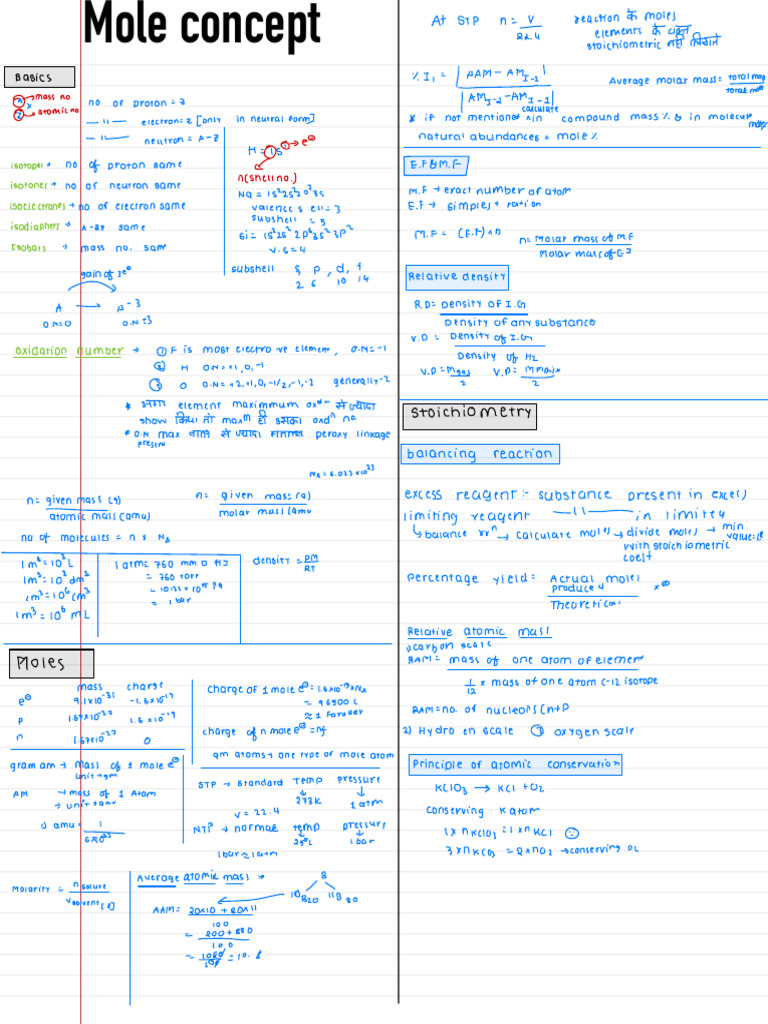 Mole concept
Basics
mass no.
A
X
Z
atomic no
no of proton = Z
—11— electron = Z [only in neutral form]
—11— neutron = A-Z
isotopes → no of proton same
isotones → no of neutron same
isoelectrones → no of electron same
isodiaphers → A-2Z same
Isobars → mass no. same
H = 1s¹ → e⊖
n(shell no.)
Na = 1s²2s²2p⁶3s
valence shell = 3
subshell = 5
Si = 1s²2s² 2p⁶3s² 3p²
v.s = 4
subshell s, p, d, f
2 6 10 14
gain of 3e⊖
A → A⁻³
O.N=0 O.N=3
oxidation number → ① F is most electro ve element, O.N = -1
② H O.N = +1, 0, -1
③ O O.N = +2, +1, 0, -1/2, -1, -2 generally -2
* अगर element maximmum oxdⁿ से ज्यादा
show किया तो maxᵐ ही उसका oxdⁿ no
* O.N max वाले से ज्यादा मतलब peroxy linkage
present
N_A = 6.023 × 10²³
n = given mass (g) / atomic mass (amu)
n = given mass (g) / molar mass (amu
no of molecules = n × N_A
1m³ = 10³ L
1m³ = 10³ dm³
1m³ = 10⁶ cm³
1m³ = 10⁶ mL
1 atm = 760 mm O Hg
= 760 torr
= 1 bar
density = PM / RT
Moles
mass charge
e⊖ 9.1×10⁻³¹ -1.6×10⁻¹⁹
p 1.67×10⁻²⁷ 1.6×10⁻¹⁹
n 1.67×10⁻²⁷ 0
charge of 1 mole e⊖ = 1.6×10⁻¹⁹×N_A
= 96500 C
≈ 1 Faraday
charge of n mole e⊖ = nf
gm atoms → one type of mole atom
gram am → mass of 1 mole e⊖
unit → gm
AM → mass of 1 Atom
→ unit → amu
1 amu = 1 / 6×10²³
STP → standard temp pressure
273K 1 atm
V = 22.4
NTP → normal temp pressure
25°C 1 bar
1 bar ≈ 1 atm
Molarity = n solute / V solvent (l)
Average atomic mass →
B
¹⁰B20 ¹¹B 80
AAM = 20×10 + 80×11 / 100
= 200 + 880 / 100
= 1080 / 100 = 10.8
At STP n = V / 22.4
reaction के moles
elements के
stoichiometric नहीं
% I₁ = | AAM - AM I-2 / AM I-2 - AM I-1 |
Average molar mass = total mass / total moles
calculate
* if not mentioned in compound mass % & in molecule mole%
natural abundances = mole %
E.F & M.F
M.F → exact number of atom
E.F → simplest ration
M.F = (E.F) × n
n = Molar mass of M.F / Molar mass of E.F
Relative density
R.D = Density of I.G / Density of any substance
V.D = Density of I.G / Density of H₂
V.D = M gas / 2 V.D = M mix / 2
Stoichiometry
balancing reaction
excess reagent :- substance present in excess
limiting reagent —11— in limited
↳ balance rxⁿ → calculate moles → divide moles → min
with stoichiometric value = LR
coeff
Percentage yield = Actual moles produced / Theoretical × 100
Relative atomic mass
① carbon scale
RAM = mass of one atom of element / 1/12 × mass of one atom C-12 isotope
RAM = no. of nucleons (n+p
2) Hydro en scale ③ oxygen scale
Principle of atomic conservation
KClO₃ → KCl + O₂
conserving K atom
1 × n KClO₃ = 1 × n KCl
3 × n KClO₃ = 2 × n O₂ → conserving O₂